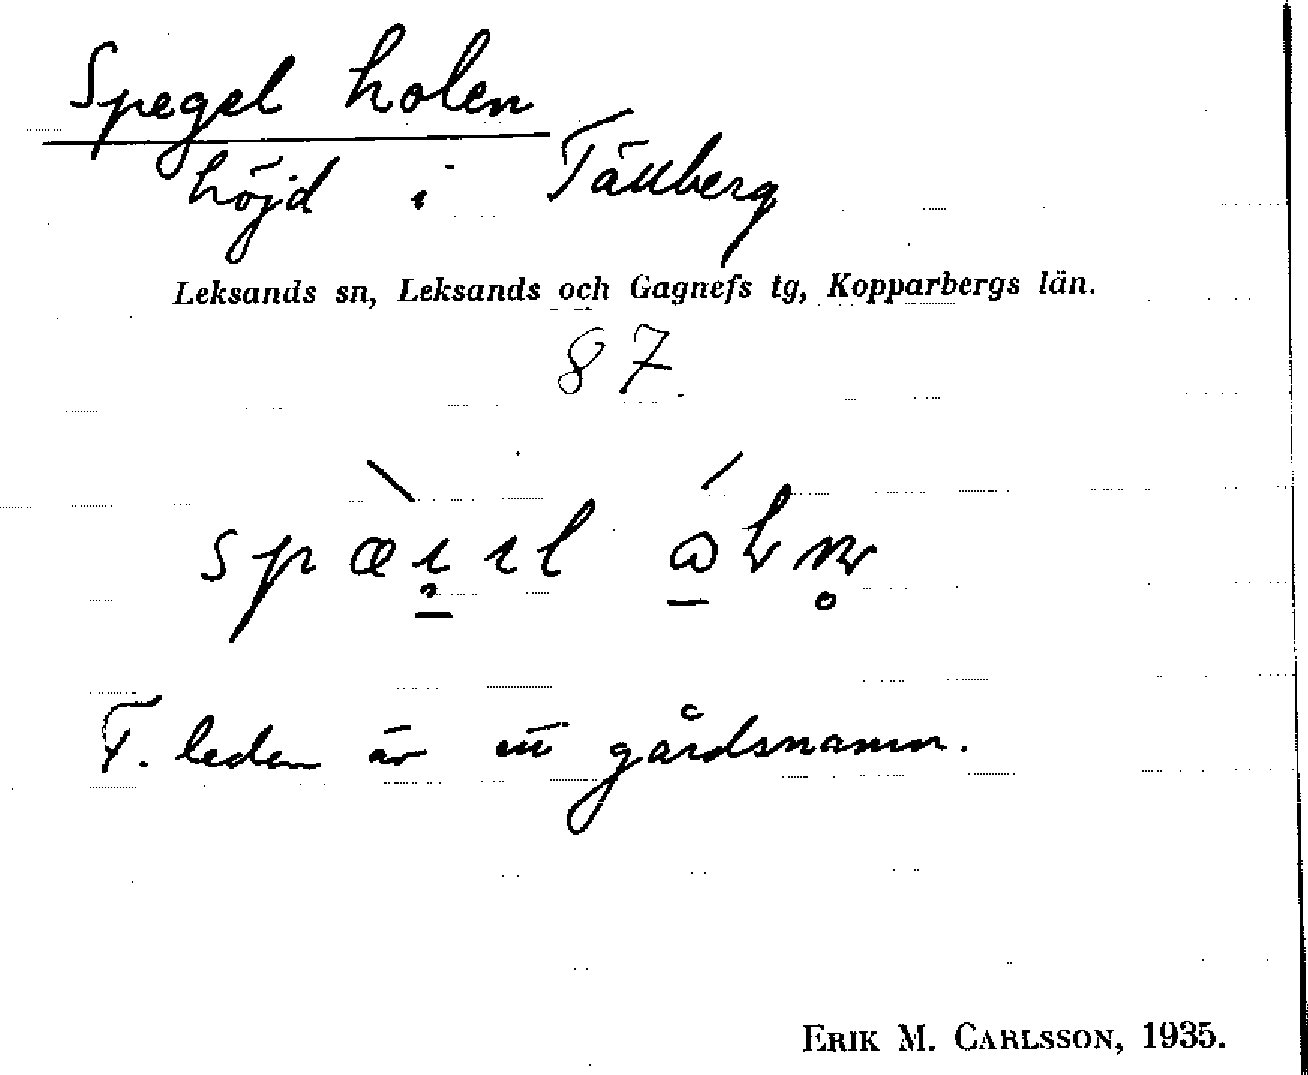 Spegel holen
höjd i Tällberg
Leksands sn, Leksands och Gagnefs tg, Kopparbergs län.
87.
F. leden är ett gårdsnamn.
ERIK M. CARLSSON, 1935.